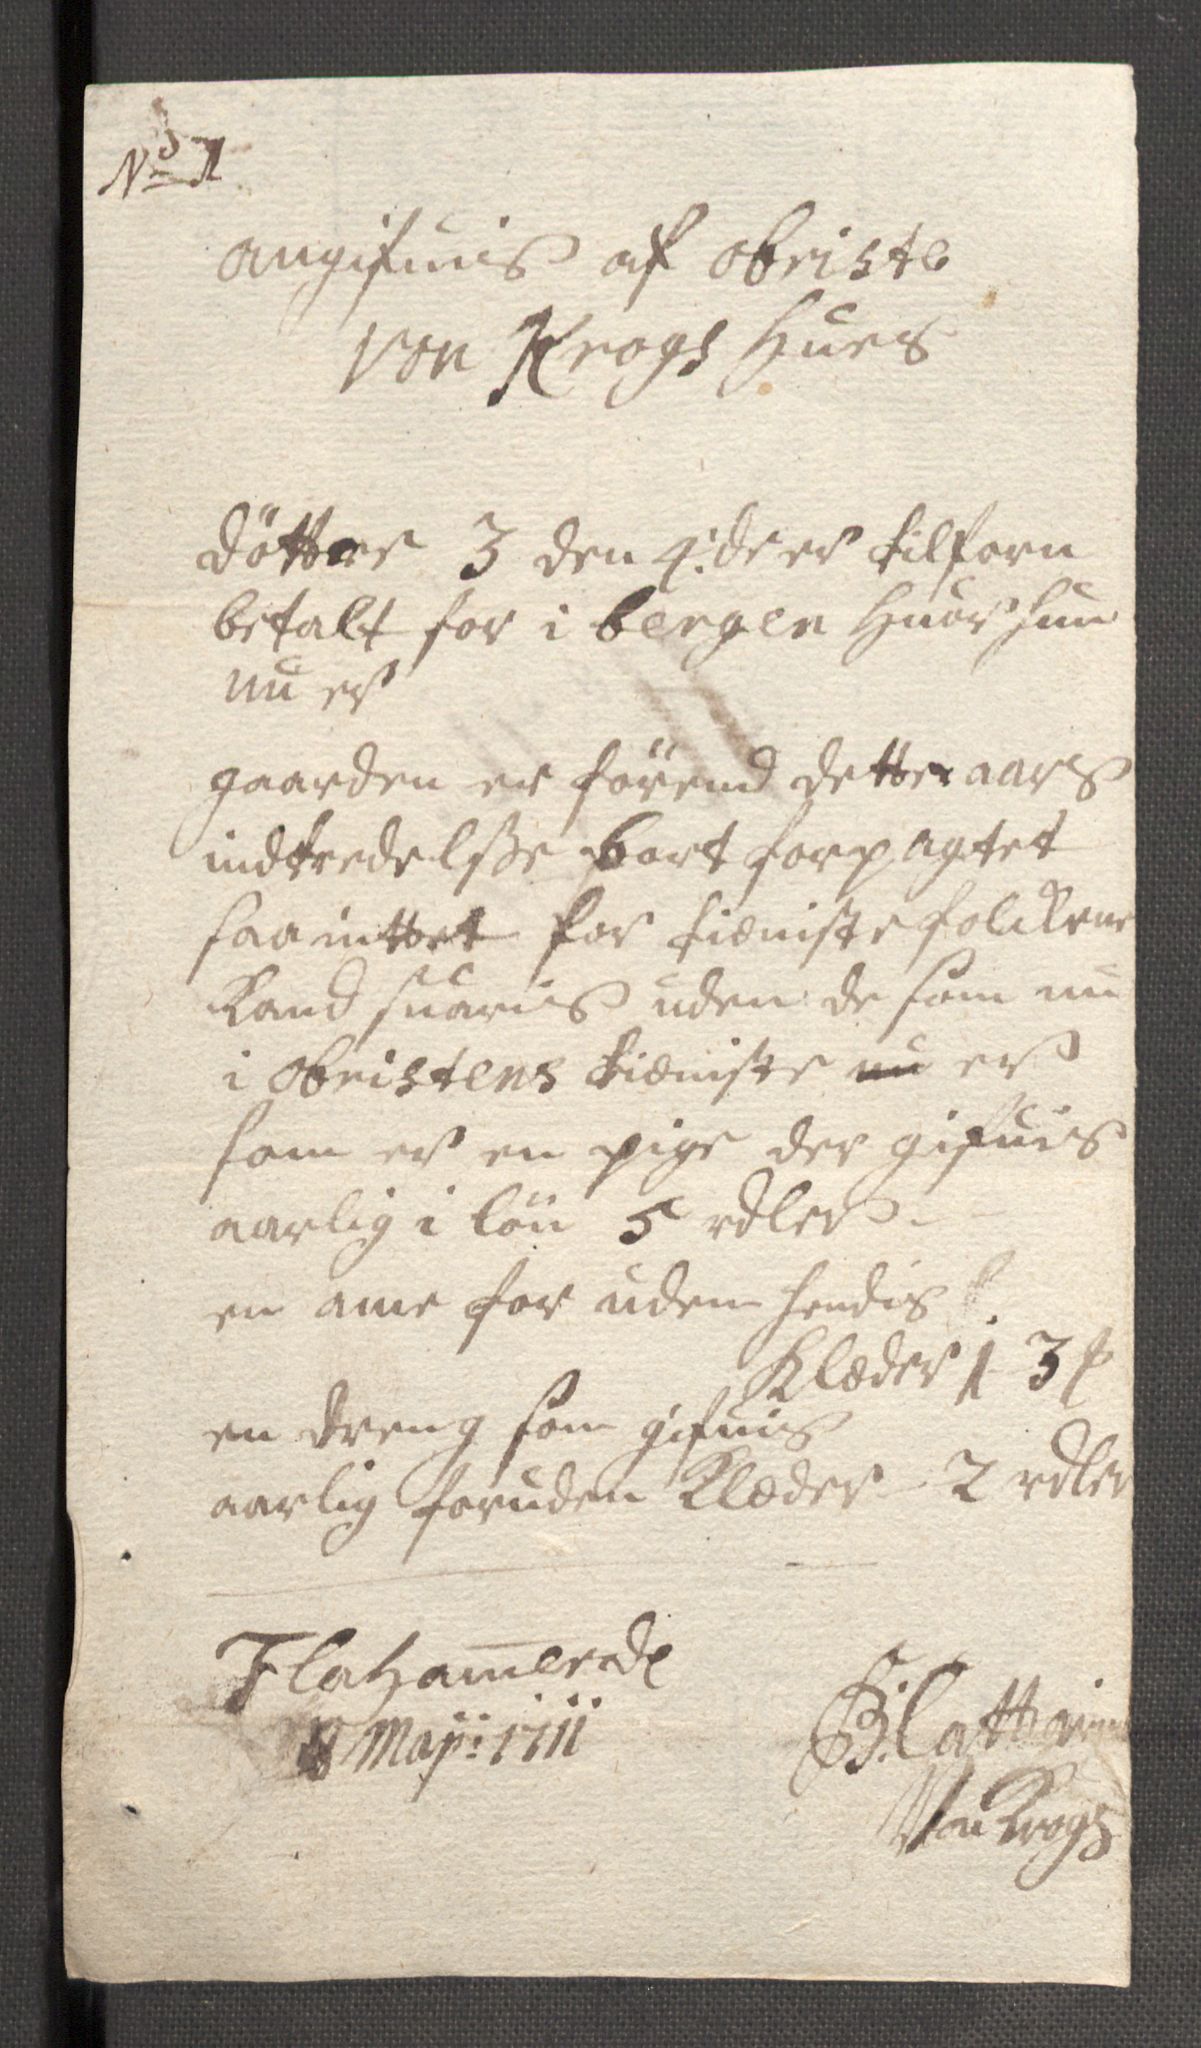 No 1
angifuis af obriste
von Kroghs Huus
döttre 3 den 4:de er tilforn
betalt for i bergen huor hun
nu er
gaarden er förend dette aars
indtredelsse bort forpagtet
saa inttet for tieniste folckene
kand suaris uden de som nu
i obristens tieniste nu er
som er en pige der gifuis
aarlig i lön 5 rdler
en ame for uden hendis
Klæder 3
en dreng som gifuis
aarlig foruden Klæder 2 rdler
Flahammer d
8 Maji: 1711
Von Krogh